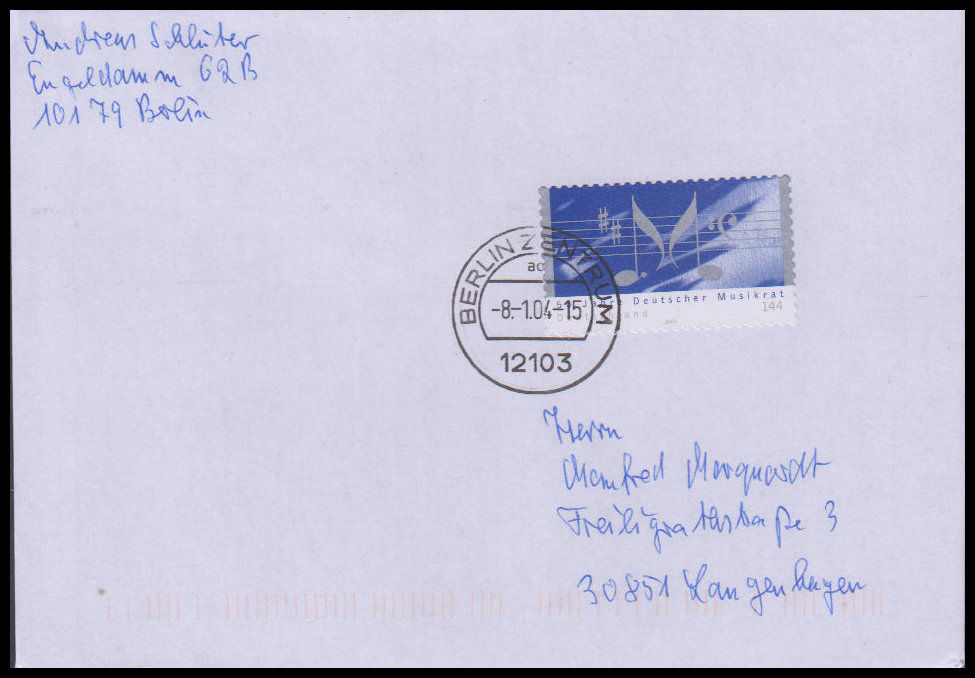 Andreas Schlüter
Engeldamm 62B
10179 Berlin
BERLIN ZENTRUM
ac
-8.-1.04-15
12103
50 Jahre Deutscher Musikrat
Deutschland
144
Herrn
Manfred Marquardt
Freiligrathstraße 3
30851 Langenhagen